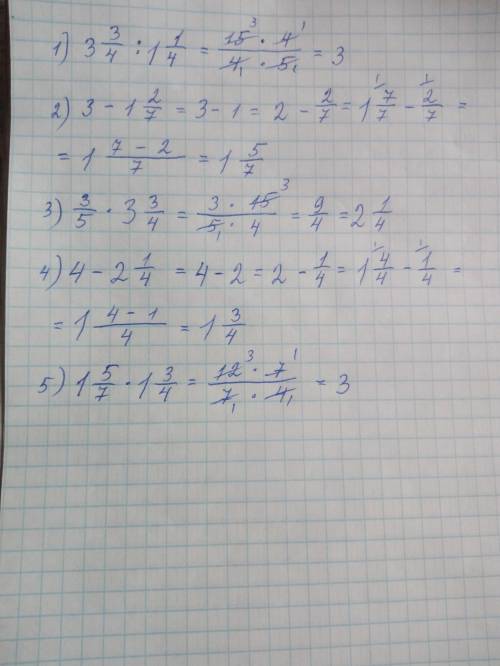 1) 3 3/4 : 1 1/4 = (15³ · 4¹)/(4₁ · 5₁) = 3
2) 3 - 1 2/7 = 3 - 1 = 2 - 2/7 = 1 7/7 - 2/7 =
= 1 (7 - 2)/7 = 1 5/7
3) 3/5 · 3 3/4 = (3 · 15³)/(5₁ · 4) = 9/4 = 2 1/4
4) 4 - 2 1/4 = 4 - 2 = 2 - 1/4 = 1 4/4 - 1/4 =
= 1 (4 - 1)/4 = 1 3/4
5) 1 5/7 · 1 3/4 = (12³ · 7¹)/(7₁ · 4₁) = 3